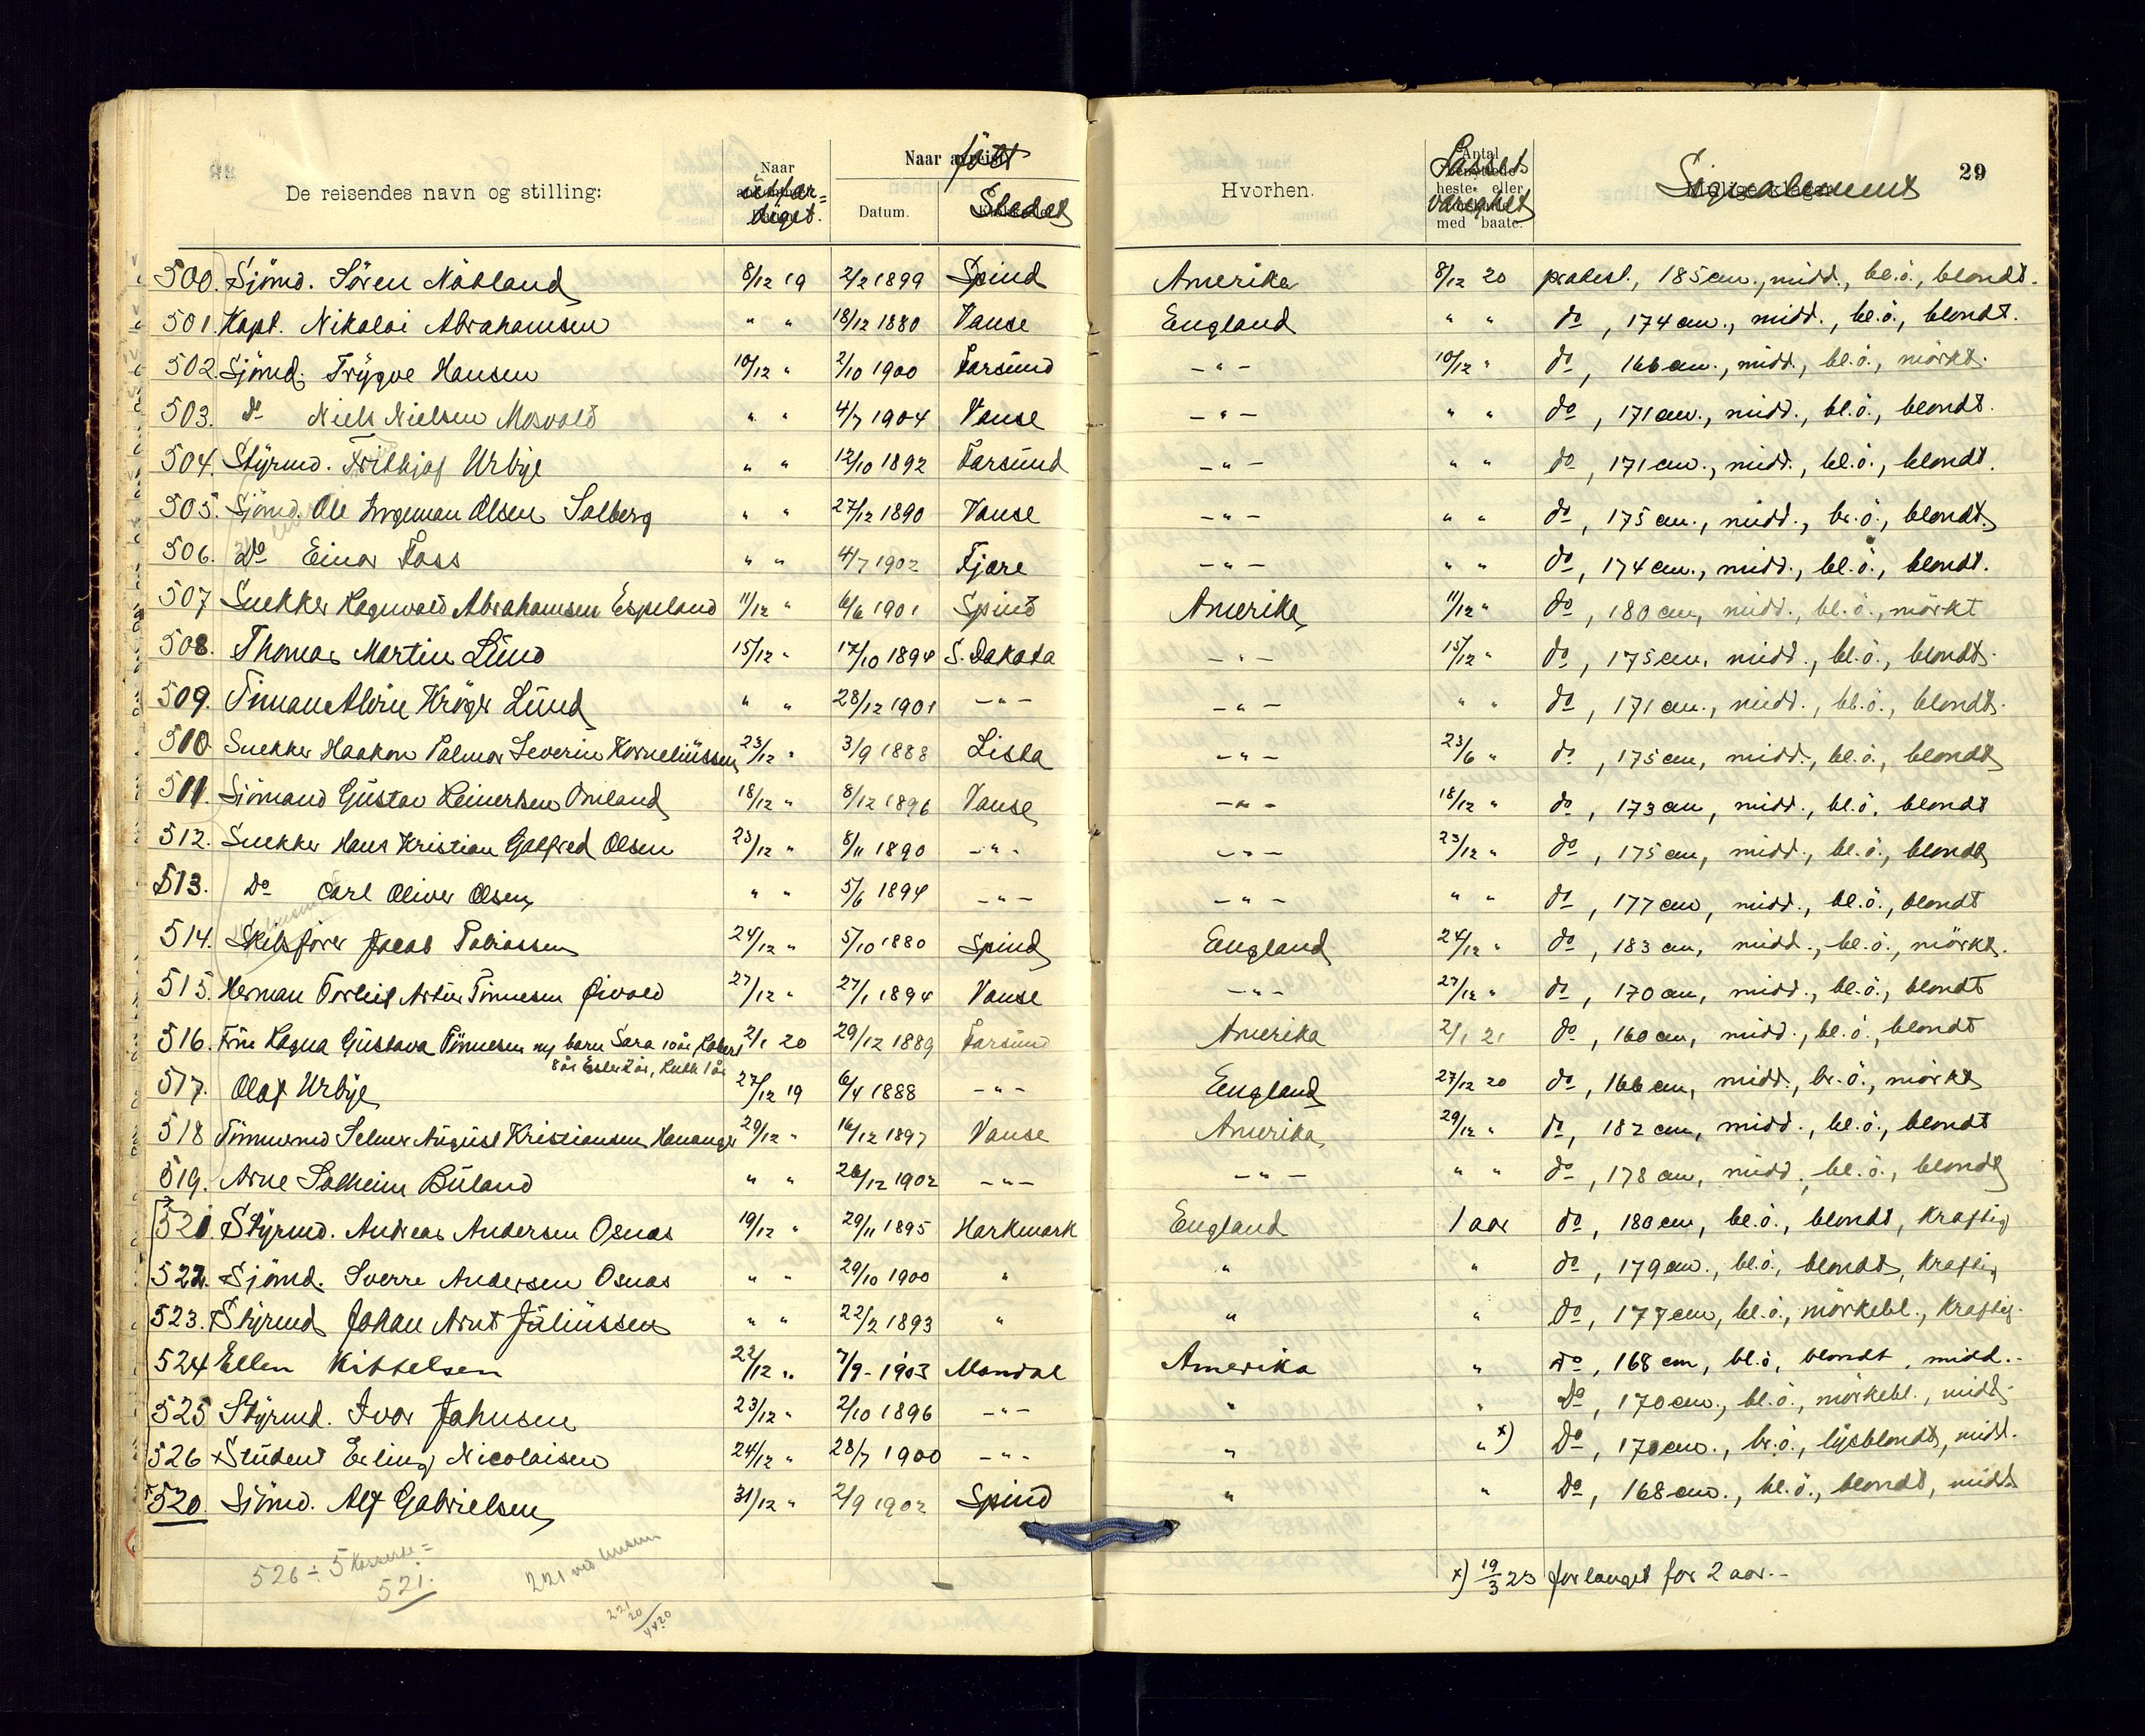 29
De reisendes navn og stilling: Naar utfær=diget. Naar født Datum. Stedet Hvorhen. Passets varighet Signalement
500. Sjömd. Sören Nåtland 8/12 19 2/2 1899 Spind Amerika 8/12 20 protest., 185 cm., midd., bl.ö., blondt.
501. Kapt. Nikolai Abrahamsen " " 18/12 1880 Vanse England " " do, 174 cm., midd., bl.ö., blondt.
502. Sjömd. Trygve Hansen 10/12 " 2/10 1900 Farsund - " - 10/12 " do, 166 cm., midd., bl.ö., mörkt.
503. do Niels Nielsen Mosvold " " 4/7 1904 Vanse - " - " " do, 171 cm., midd., bl.ö., blondt.
504. Styrmd. Frithjof Urbye " " 12/10 1892 Farsund - " - " " do, 171 cm., midd., bl.ö., blondt.
505. Sjömd. Ole Ingeman Olsen Salberg " " 27/12 1890 Vanse - " - " " do, 175 cm., midd., br.ö., blondt.
506. Do Einar Foss " " 4/7 1902 Fjære - " - " " do, 174 cm., midd., bl.ö., blondt.
507 Snekker Ragnvald Abrahamsen Espeland 11/12 " 6/6 1901 Spind Amerika 11/12 " do, 180 cm, midd., bl.ö., mörkt
508. Thomas Martin Lund 15/12 " 17/10 1894 S. Dakota - " - 15/12 " do, 175 cm, midd., bl.ö., blondt.
509. Tinman Alvin Kröger Lund " " 28/12 1901 - " - - " - " " do, 171 cm., midd., bl.ö., blondt.
510. Snekker Haakon Palmar Severin Korneliussen 23/12 " 3/9 1888 Lista - " - 23/6 " do, 175 cm, midd., bl.ö., blondt
511. Sjömand Gustav Reinertsen Omland 18/12 " 8/12 1896 Vanse - " - 18/12 " do, 173 cm, midd., bl.ö., blondt
512. Snekker Hans Kristian Galfred Olsen 23/12 " 8/11 1890 - " - - " - 23/12 " do, 175 cm, midd., bl.ö., blondt
513. Do Carl Oliver Olsen " " 5/6 1894 - " - - " - " " do, 177 cm, midd., bl.ö., blondt
514. Skibsfører Jacob Tobiassen 24/12 " 5/10 1880 Spind England 24/12 " do, 183 cm, midd., bl.ö., mörkt.
515. Herman Torleif Artur Tönnesen Öivold 27/12 " 27/1 1894 Vanse - " - 27/12 " do, 170 cm, midd., bl.ö., blondt
516. Fru Ragna Gustava Tönnesen m/ barn Sara 10 år Robert 2/1 20 29/12 1889 Farsund Amerika 2/1 21 do, 160 cm, midd., bl.ö., blondt
8 år Ester 2 år, Ruth 1 år
517. Olaf Urbye 27/12 19 6/4 1888 - " - England 27/12 20 do, 166 cm, midd., br.ö., mörkt
518 Tömmermd Selmer August Kristiansen Hananger 29/12 " 16/12 1897 Vanse Amerika 29/12 " do, 182 cm, midd., bl.ö., blondt
519. Arne Solheim Buland " " 26/12 1902 - " - - " - " " do, 178 cm, midd., bl.ö., blondt
521. Styrmd. Andreas Andersen Osnas 19/12 " 29/11 1895 Harkmark England 1 aar do, 180 cm, bl.ö., blondt, kraftig
522. Sjömd. Sverre Andersen Osnas " " 29/10 1900 " " " do, 179 cm., bl.ö., blondt, kraftig
523. Styrmd Johan Arnt Juliussen " " 22/2 1893 " " " do, 177 cm, bl.ö., mörkebl., kraftig.
524 Ellen Kittelsen 22/12 " 7/9 - 1903 Mandal Amerika " do, 168 cm, bl.ö, blondt, midd.-
525 Styrmd. Ivar Jahnsen 23/12 " 2/10 1896 - " - " " Do, 170 cm., bl.ö., mörkebl., midd.
526 Student Erling Nicolaisen 24/12 " 28/7 1900 - " - " " x) Do, 170 cm., br.ö., lysblondt, midd.
520. Sjömd. Alf Gabrielsen 31/12 " 2/9 1902 Spind " " Do, 168 cm., bl.ö., blondt, midd.
x) 19/3 23 forlænget for 2 aar.-
526 ÷ 5 Kasserte =
521.
221 ved
221
20
4420